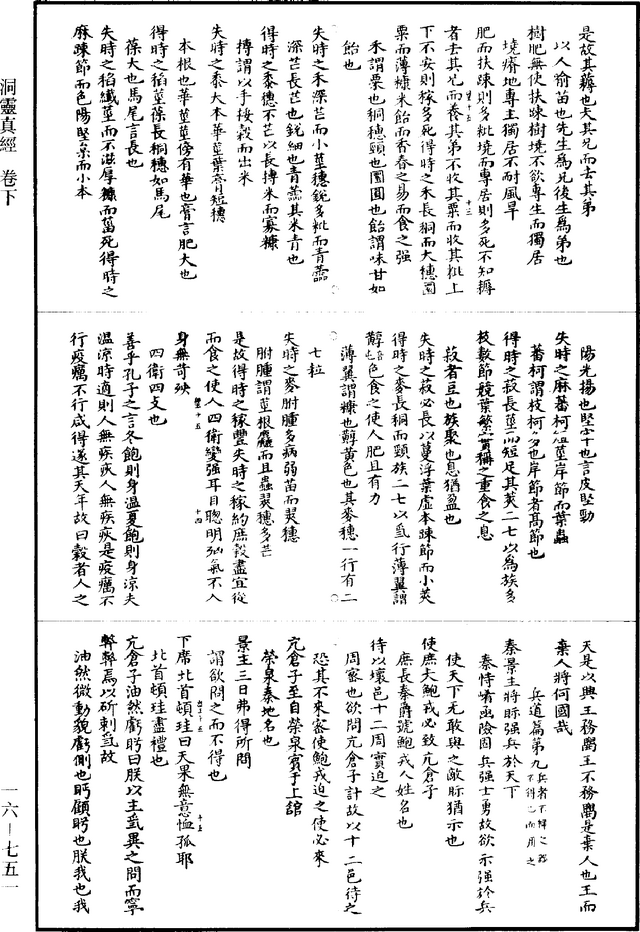 洞靈真經　卷下
一六—七五一
是故其耨也夫其兄而去其弟
以人喻苗也先生為兄後生為弟也
樹肥無使扶踈樹墝不欲專生而獨居
墝瘠地專主獨居不耐風旱
肥而扶踈則多粃墝而專居則多死不知耨
者去其兄而養其弟不收其粟而收其粃上
下不安則稼多死得時之禾長秱而大穗圓
粟而薄糠米飴而香舂之易而食之强
禾謂粟也秱穗頸也圓圓也飴謂味甘如
飴也
失時之禾深芒而小莖穗銳多粃而青蕃
深芒長芒也銳細也青蕃其米青也
得時之黍穗不芒以長摶米而寡糠
摶謂以手挼穀而出米
失時之黍大本華莖葉膏短穗
本根也華莖莖傍有華也膏言肥大也
得時之稻莖葆長秱穗如馬尾
葆大也馬尾言長也
失時之稻纖莖而不滋厚糠而菑死得時之
麻踈節而色陽堅枲而小本
陽光揚也堅牢也言皮堅勁
失時之麻蕃柯短莖岸節而葉蟲
蕃柯謂枝柯多也岸節者高節也
得時之菽長莖而短足其莢二七以為族多
枝數節競葉繁實稱之重食之息
菽者豆也族聚也息猶盈也
失時之菽必長以蔓浮葉虛本踈節而小莢
得時之麥長秱而頸族二七以為行薄翼謂
薄翼謂糠也䵍黃色也其麥穗一行有二
七粒
失時之麥胕腫多病弱苗而翜穗
胕腫謂莖根麤而且蟲翜穗多芒
是故得時之稼豐失時之稼約庶穀盡宜從
而食之使人四衛變强耳目聰明㐫氣不入
身無苛殃
四衛四支也
善乎孔子之言冬飽則身温夏飽則身涼夫
温涼時適則人無疾疢人無疾疢是疫癘不
行疫癘不行咸得遂其天年故曰穀者人之
天是以興王務農王不務農是棄人也王而
棄人將何國哉
兵道篇第九
秦景主將眎强兵於天下
秦恃崤凾險固兵强士勇故欲示强於兵
使天下无敢與之敵眎猶示也
使庶大鮑戎必致亢倉子
庶長秦爵號鮑戎人姓名也
待以壞邑十二周實迫之
周密也欲問亢倉子計故以十二邑待之
恐其不來密使鮑戎迫之使必來
亢倉子至自榮泉賓于上館
榮泉秦地名也
景主三日弗得所問
謂欲問之而不得也
下席北首頓珪曰天果無意恤孤耶
北首頓珪盡禮也
亢倉子油然虧眄曰朕以主為異之問而寧
弊弊焉以斫刺為故
油然微動貌虧側也眄顧眄也朕我也我